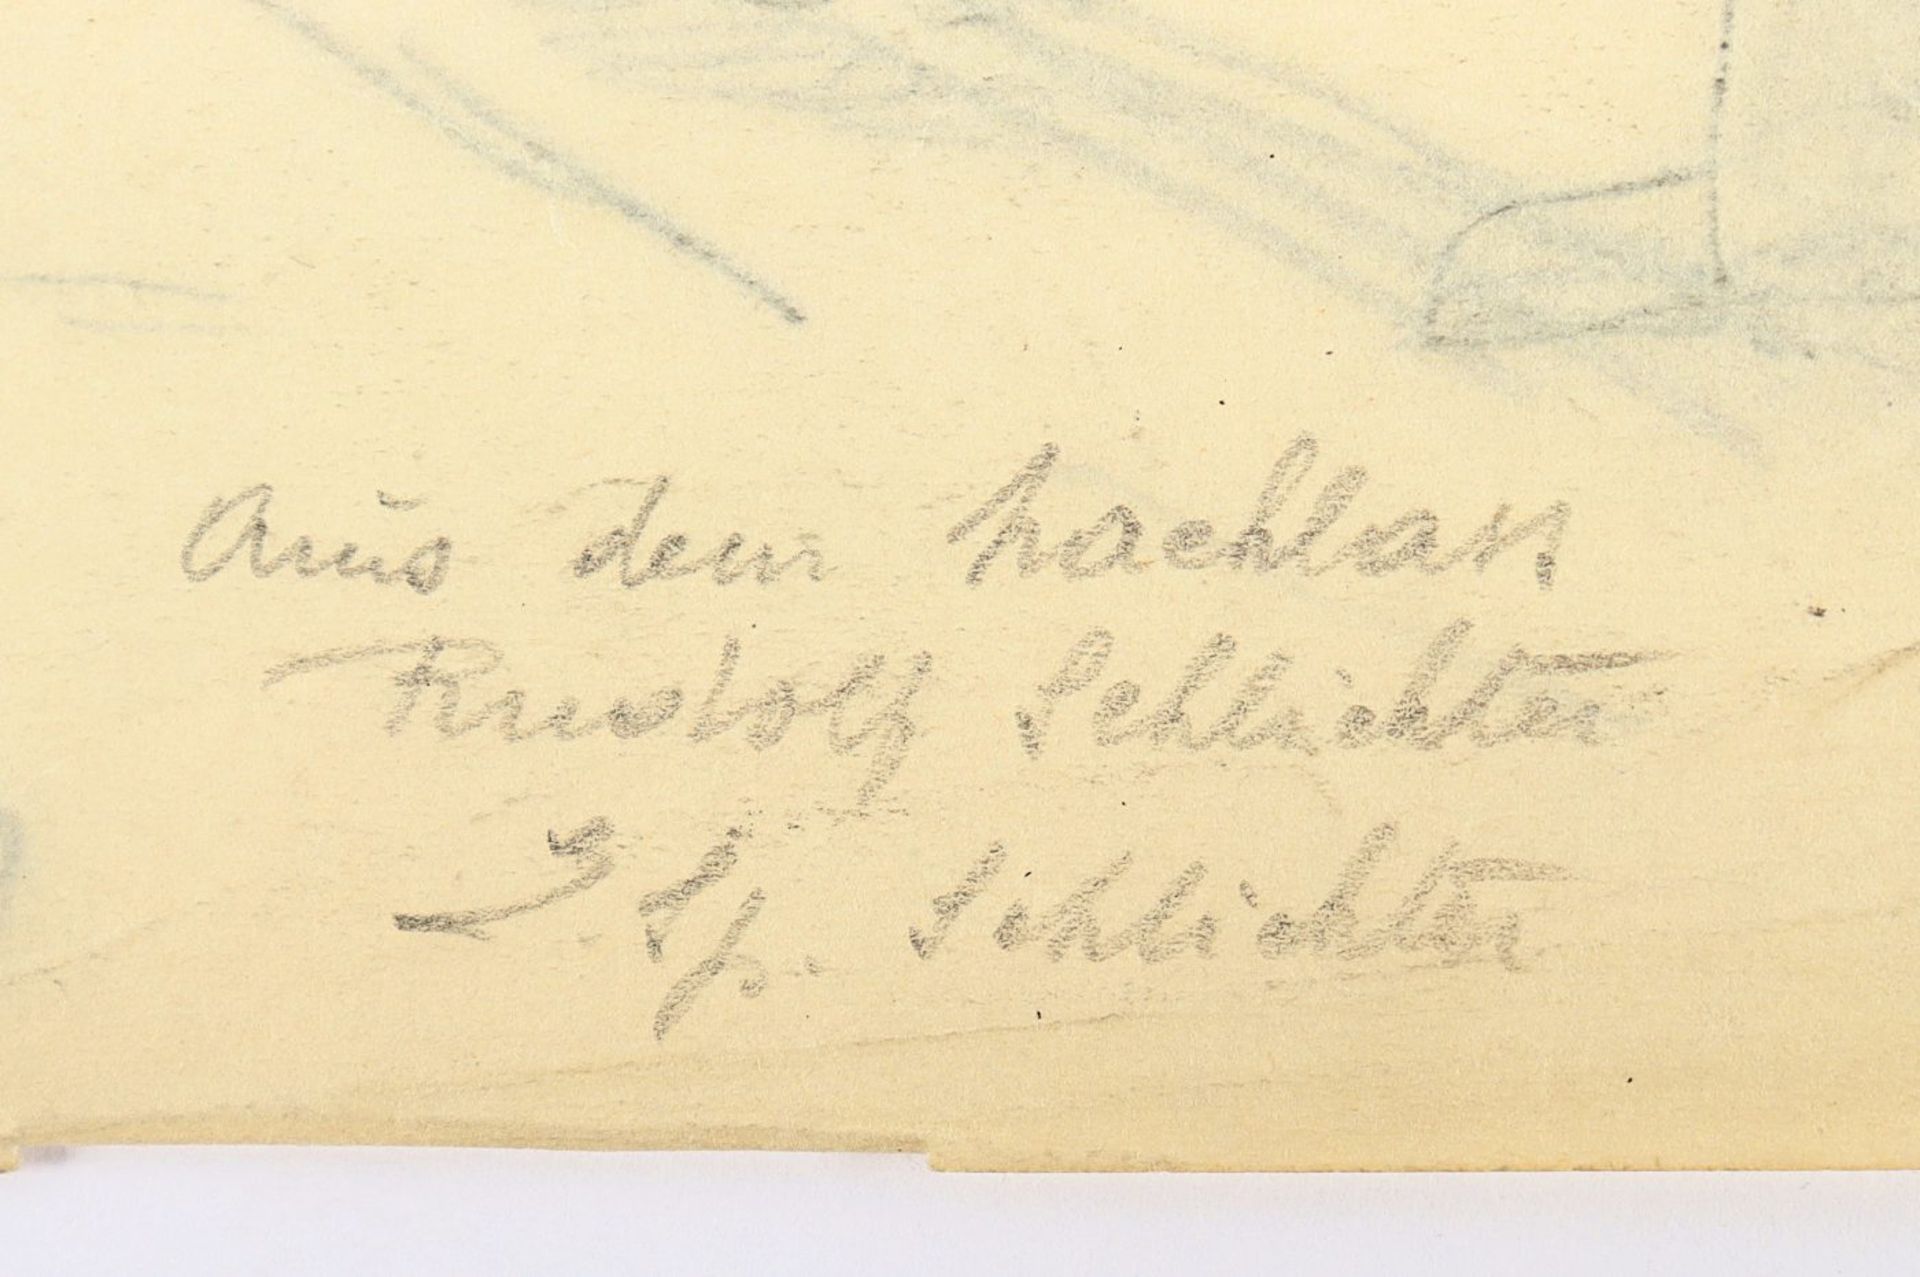 Aus dem Nachlass
Rudolf Schlichter
Sp. Schlichter